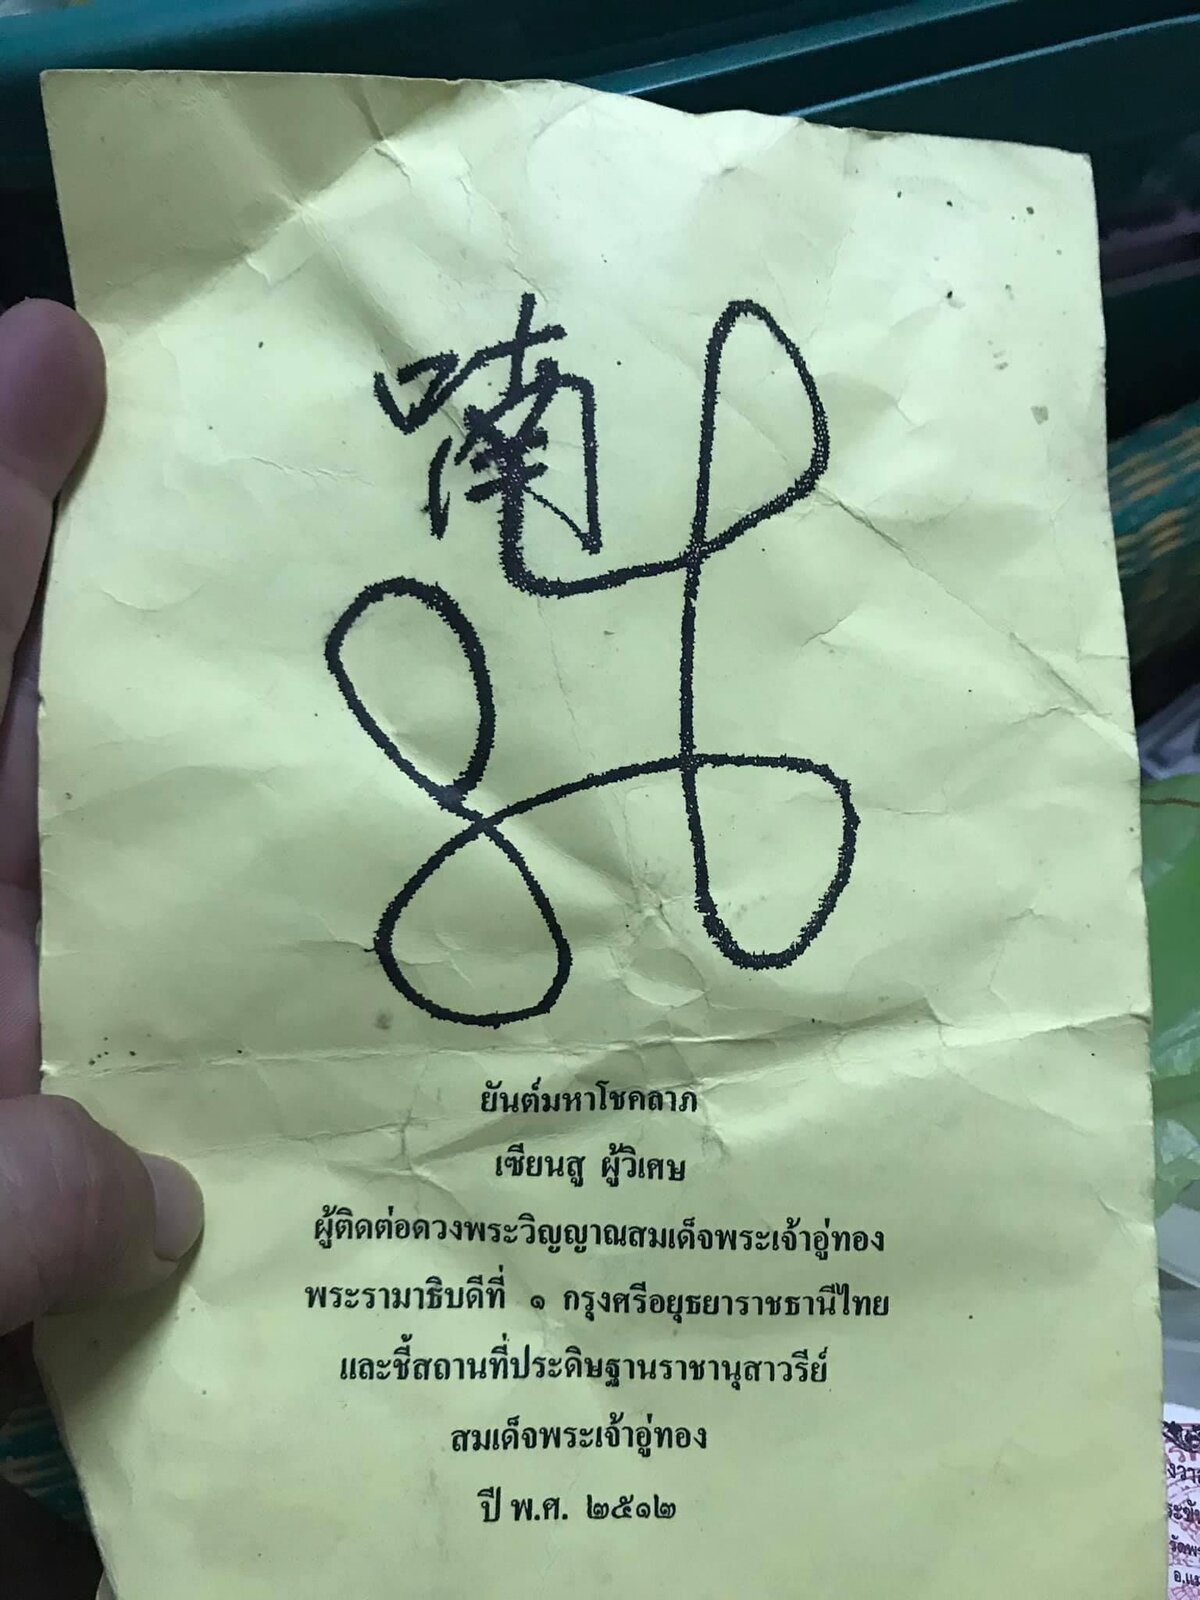 喃
ยันต์มหาโชคลาภ
เซียนสู ผู้วิเศษ
ผู้ติดต่อดวงพระวิญญาณสมเด็จพระเจ้าอู่ทอง
พระรามาธิบดีที่ ๑ กรุงศรีอยุธยาราชธานีไทย
และชี้สถานที่ประดิษฐานราชานุสาวรีย์
สมเด็จพระเจ้าอู่ทอง
ปี พ.ศ. ๒๕๑๒